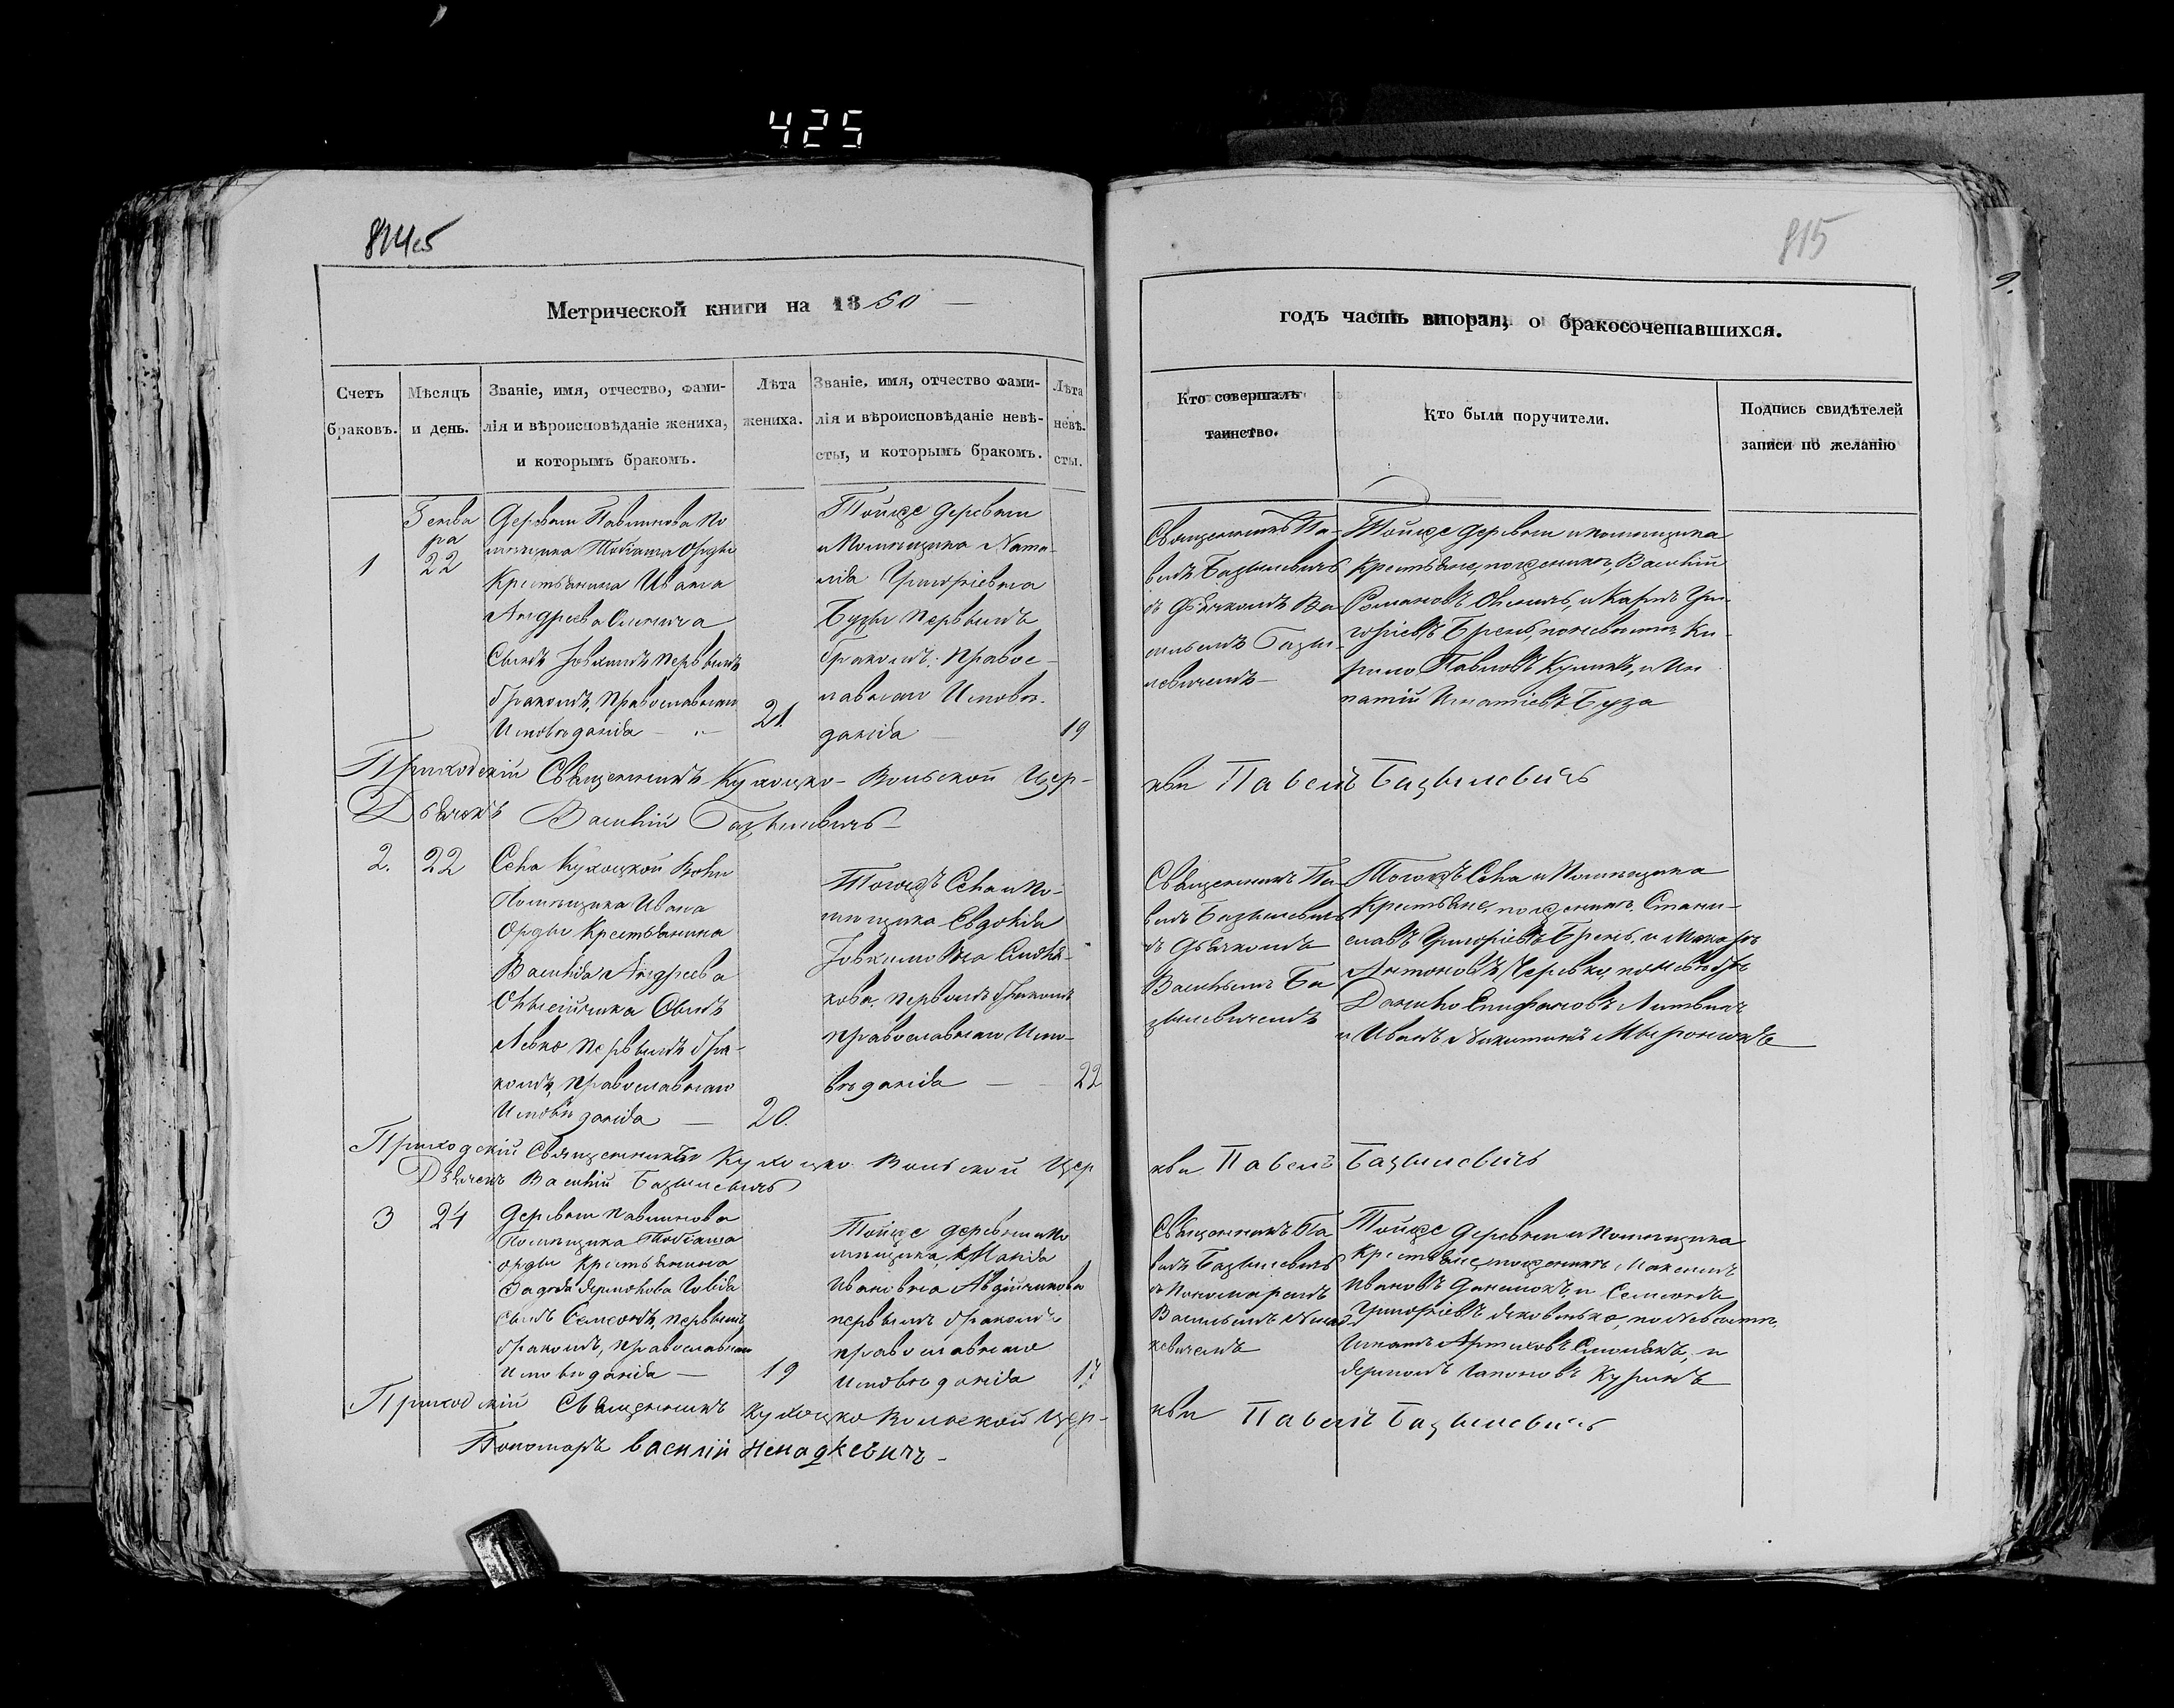 425
815
Метрической книги на 1850
годъ часть вторая, о бракосочетавшихся.
Счетъ браковъ.
Мѣсяцъ и день.
Званіе, имя, отчество, фами-
лія и вѣроисповѣданіе жениха,
и которымъ бракомъ.
Лѣта
жениха.
Званіе, имя, отчество фами-
лія и вѣроисповѣданіе невѣ-
сты, и которымъ бракомъ.
Лѣта
невѣ-
сты.
Кто совершалъ
таинство.
Кто были поручители.
Подпись свидѣтелей
записи по желанію
1
Генва
ра
22
Деревни Павлинова по
мѣщика Орды
Крестьянина Ивана
Андреева
Сынъ первымъ
бракомъ, православнаго
Исповѣданія
21.
Тойже деревни
и Помѣщика Ната-
лія Григоріевна
Бузы первымъ
бракомъ. Правос-
лавнаго Исповѣ-
данія
19
Священникъ Па-
велъ Базылевичъ
съ Дьячкомъ Ва
сильемъ Базы-
левичемъ
Тойже деревни и помѣщика
Крестьяне, по женихѣ, Василій
Романовъ и Карпъ Гри-
горіевъ по невѣстѣ Ки-
рило Павловъ и Иг
натій Игнатіевъ Буза
Приходскій Священникъ Кухоцко-Вольской Цер-
кви Павелъ Базылевичъ
Дьячокъ Василій Базылевичъ
2.
22
Села Кухоцкой Воли
Помѣщика Ивана
Орды Крестьянина
Василія Андреева
Сынъ
Левко первымъ бра-
комъ, православнаго
Исповѣданія
20.
Тогожъ Села и По-
мѣщика Евдокія
первымъ бракомъ
православнаго Испо-
вѣданія
22
Священникъ Па-
велъ Базылевичъ
съ Дьячкомъ
Васильемъ Ба
зылевичемъ
Тогожъ Села и Помѣщика
Крестьяне, по женихѣ, Стани-
славъ Григоріевъ и Макаръ
Антоновъ по невѣстѣ
Данило Епифановъ Литвинъ
и Иванъ Никитинъ Миронюкъ
Приходскій Священникъ Кухоцко Вольской Цер
кви Павелъ Базылевичъ
Дьячекъ Василій Базылевичъ
3
24
Деревни Павлинова
Помѣщика
Орды Крестьянина
сынъ Семенъ, первымъ
бракомъ, православнаго
Исповѣданія
19
Тойже деревни и По
мѣщика,
Ивановна
первымъ бракомъ
православнаго
Исповѣданія
17
Священникъ Па
велъ Базылевичъ
съ Пономаремъ
Васильемъ Нена
кевичемъ
Тойже Деревни и Помѣщика
Крестьяне, по женихѣ Максимъ
Ивановъ и Семенъ
Григоріевъ по невѣстѣ,
Приходскій Священникъ Кухоцко Вольской Цер-
кви Павелъ Базылевичъ
Пономарь Василій Ненадкевичъ